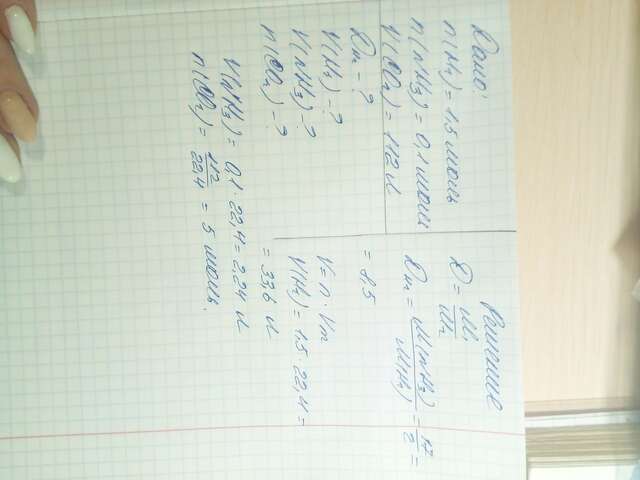 Дано:
n(H₂) = 1.5 моль
n(NH₃) = 0,1 моль
V(CO₂) = 112 л
Dн - ?
V(H₂) - ?
V(NH₃) - ?
n(CO₂) - ?
Решение
D = M/M₁
Dн = M(NH₃)/M(H₂) = 17/2 =
= 8,5
V = n · Vm
V(H₂) = 1.5 · 22,4 =
= 33,6 л
V(NH₃) = 0,1 · 22,4 = 2,24 л
n(CO₂) = 112/22,4 = 5 моль.